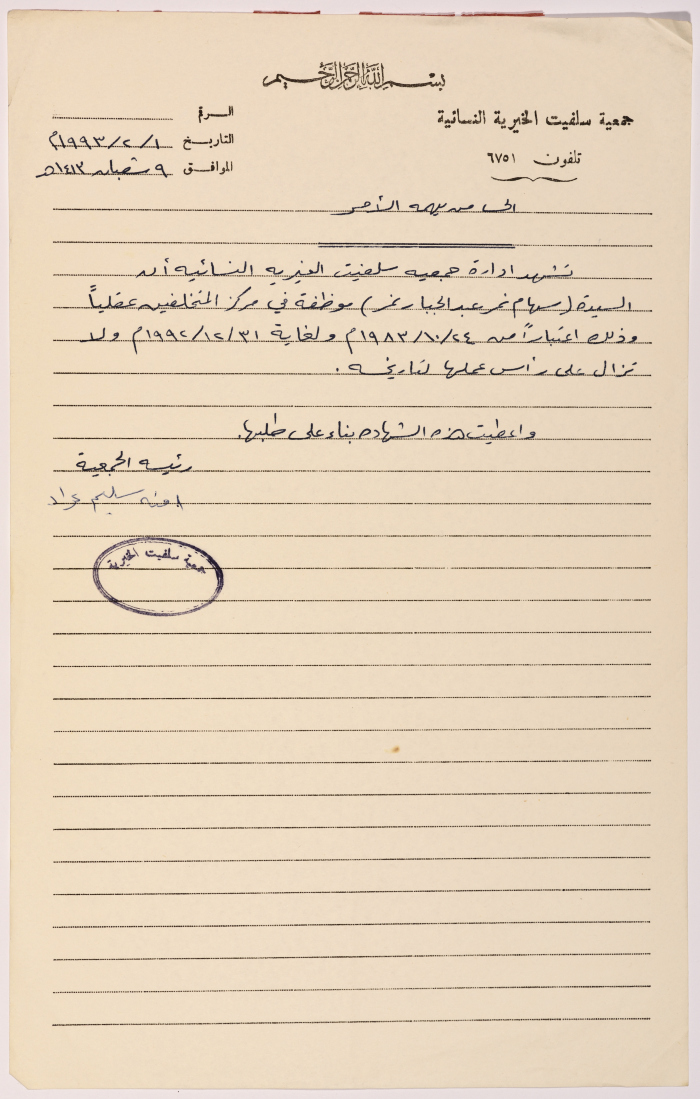 بسم الله الرحمن الرحيم
جمعية سلفيت الخيرية النسائية
تلفون ٦٧٥١
الرقم
التاريخ ١/٢/١٩٩٣م
الموافق ٩ شعبان ١٤١٣هـ
الى من يهمه الأمر
تشهد ادارة جمعيه سلفيت الخيريه النسائيه أن
السيدة (سهام نمر عبد الجبار نمر) موظفة في مركز المتخلفين عقلياً
وذلك اعتباراً من ٢٤/١٠/١٩٨٣م ولغاية ٣١/١٢/١٩٩٢م ولا
تزال على رأس عملها لتاريخه.
واعطيت هذه الشهاده بناء على طلبها.
رئيسه الجمعية
امنه سليم عواد
جمعية سلفيت الخيرية